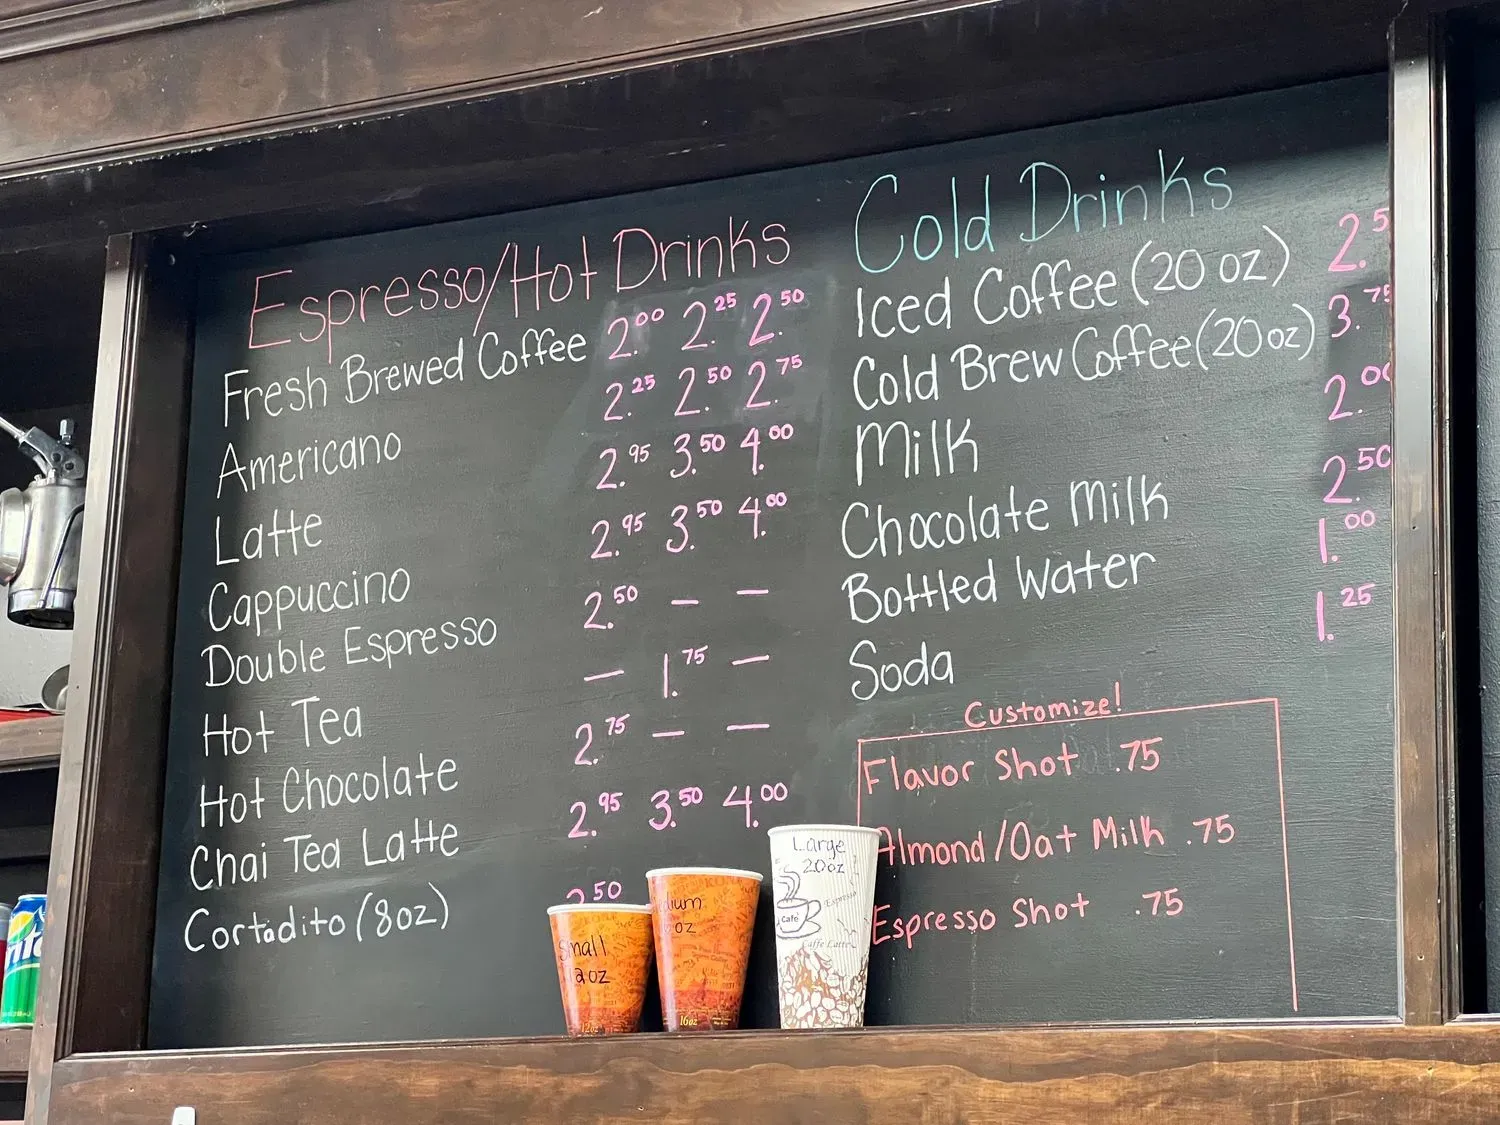 Espresso/Hot Drinks
Fresh Brewed Coffee 2.00 2.25 2.50
Americano 2.25 2.50 2.75
Latte 2.95 3.50 4.00
Cappuccino 2.95 3.50 4.00
Double Espresso 2.50 — —
Hot Tea — 1.75 —
Hot Chocolate 2.75 — —
Chai Tea Latte 2.95 3.50 4.00
Cortadito (8oz) 2.50
Cold Drinks
Iced Coffee (20 oz) 2.5
Cold Brew Coffee (20oz) 3.75
Milk 2.00
Chocolate Milk 2.50
Bottled Water 1.00
Soda 1.25
Customize!
Flavor Shot .75
Almond/Oat Milk .75
Espresso Shot .75
Small
12oz
12oz
16oz
Large
20oz
Café
Espresso
Caffe Latte